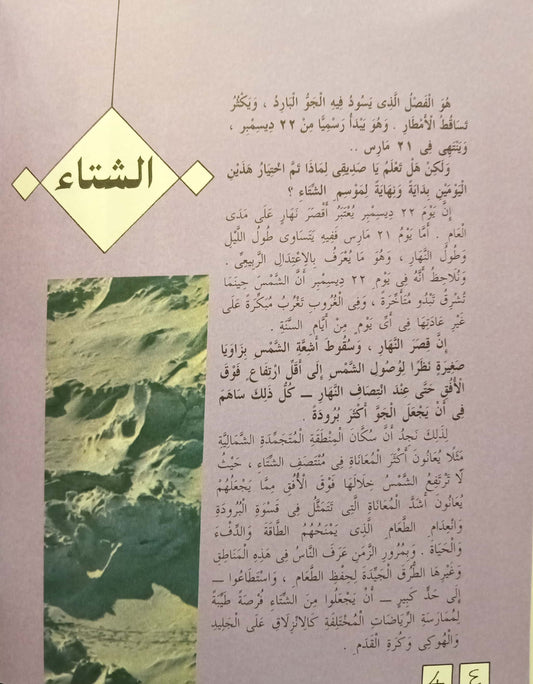 الشتاء
هُوَ الْفَصْلُ الَّذِى يَسُودُ فِيهِ الْجَوُّ الْبَارِدُ ، وَيَكْثُرُ
تَسَاقُطُ الْأَمْطَارِ . وَهُوَ يَبْدَأُ رَسْمِيًّا مِنْ ٢٢ دِيسِمْبِر ،
وَيَنْتَهِى فِى ٢١ مَارِس ..
وَلَكِنْ هَلْ تَعْلَمُ يَا صَدِيقِى لِمَاذَا تَمَّ اخْتِيَارُ هَذَيْنِ
الْيَوْمَيْنِ بِدَايَةً وَنِهَايَةً لِمَوْسِمِ الشِّتَاءِ ؟
إِنَّ يَوْمَ ٢٢ دِيسِمْبِر يُعْتَبَرُ أَقْصَرَ نَهَارٍ عَلَى مَدَى
الْعَامِ . أَمَّا يَوْمُ ٢١ مَارِس فَفِيهِ يَتَسَاوَى طُولُ اللَّيْلِ
وَطُولُ النَّهَارِ ، وَهُوَ مَا يُعْرَفُ بِالِاعْتِدَالِ الرَّبِيعِىِّ .
وَنُلَاحِظُ أَنَّهُ فِى يَوْمِ ٢٢ دِيسِمْبِر أَنَّ الشَّمْسَ حِينَمَا
تُشْرِقُ تَبْدُو مُتَأَخِّرَةً ، وَفِى الْغُرُوبِ تَغْرُبُ مُبَكِّرَةً عَلَى
غَيْرِ عَادَتِهَا فِى أَىِّ يَوْمٍ مِنْ أَيَّامِ السَّنَةِ .
إِنَّ قِصَرَ النَّهَارِ ، وَسُقُوطَ أَشِعَّةِ الشَّمْسِ بِزَاوَيَا
صَغِيرَةٍ نَظَرًا لِوُصُولِ الشَّمْسِ إِلَى أَقَلِّ ارْتِفَاعٍ فَوْقَ
الْأُفُقِ حَتَّى عِنْدَ انْتِصَافِ النَّهَارِ ـــ كُلُّ ذَلِكَ سَاهَمَ
فِى أَنْ يَجْعَلَ الْجَوَّ أَكْثَرَ بُرُودَةً .
لِذَلِكَ نَجِدُ أَنَّ سُكَّانَ الْمِنْطَقَةِ الْمُتَجَمِّدَةِ الشَّمَالِيَّةِ
مَثَلًا يُعَانُونَ أَكْثَرَ الْمُعَانَاةِ فِى مُنْتَصَفِ الشِّتَاءِ ، حَيْثُ
لَا تَرْتَفِعُ الشَّمْسُ خِلَالَهَا فَوْقَ الْأُفُقِ مِمَّا يَجْعَلُهُمْ
يُعَانُونَ أَشَدَّ الْمُعَانَاةِ الَّتِى تَتَمَثَّلُ فِى قَسْوَةِ الْبُرُودَةِ
وَانْعِدَامِ الطَّعَامِ الَّذِى يَمْنَحُهُمُ الطَّاقَةَ وَالدِّفْءَ
وَالْحَيَاةَ . وَبِمُرُورِ الزَّمَنِ عَرَفَ النَّاسُ فِى هَذِهِ الْمَنَاطِقِ
وَغَيْرِهَا الطُّرُقَ الْجَيِّدَةَ لِحِفْظِ الطَّعَامِ ، وَاسْتَطَاعُوا ـــ
إِلَى حَدٍّ كَبِيرٍ ـــ أَنْ يَجْعَلُوا مِنَ الشِّتَاءِ فُرْصَةً طَيِّبَةً
لِمُمَارَسَةِ الرِّيَاضَاتِ الْمُخْتَلِفَةِ كَالِانْزِلَاقِ عَلَى الْجَلِيدِ
وَالْهُوكِى وَكُرَةِ الْقَدَمِ .